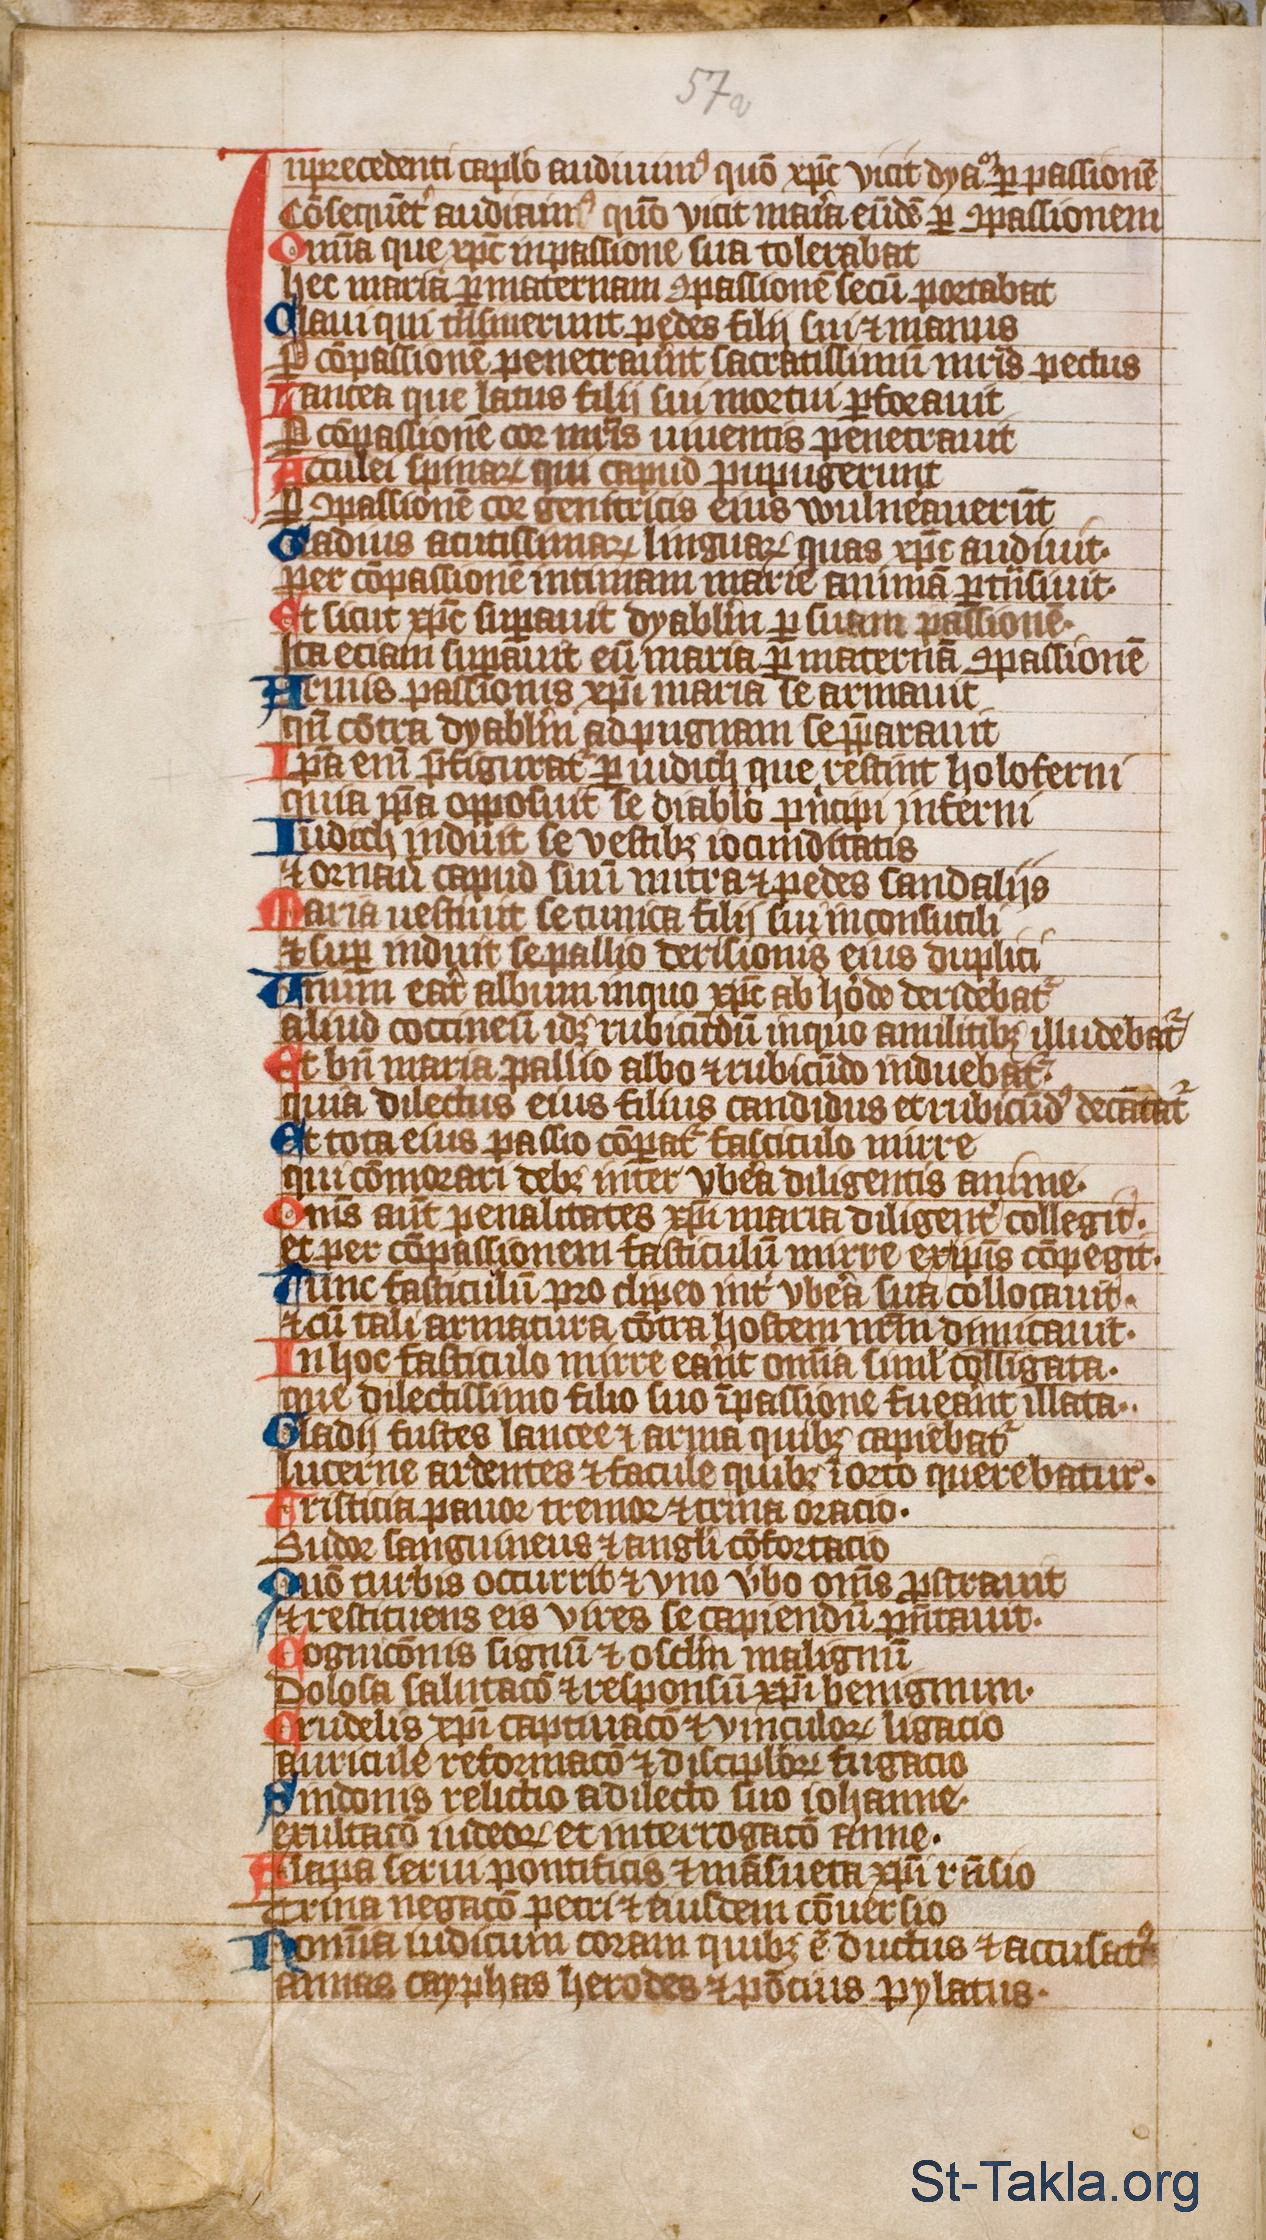 57a
In precedenti capło audiuimꝰ quō xp̄c vicit dyaᵒꝫ ꝑ passionē
Cōsequēt᷑ audiamꝰ quō vicit maͬia eūdē ꝑ ꝯpassionem
Om̄ia que xp̄c in passione sua tolerabat
hec maria ꝑ maternam ꝯpassionē secū portabat
Claui qui tͣnsiuerunt pedes filij sui ⁊ manus
ꝑ cōpassionē penetraūnt sacratissimū mͬis pectus
Lancea que latus filij sui mortui ꝑforauit
ꝑ cōpassionē cor mͬis uiuentis penetrauit
Acculei spinaꝝ qui capud pupugerunt
ꝑ ꝯpassionē cor genitricis eius wulneͣuerūt
Gladius acutissimaꝝ linguaꝝ quas xp̄c audiuit.
per cōpassionē intimam marie animā ꝑtͣnsiuit.
Et sicut xp̄c suꝑauit dyabłm ꝑ suam passionē.
Ita eciam suꝑauit eū maria ꝑ maternā ꝯpassionē
Armis passionis xp̄i maria se armauit
qn̄ cōtra dyabłm ad pugnam se p̄parauit
Ip̄a em̄ p̄figurat᷑ ꝑ iudich que restitit holoferni
quia ip̄a opposuit se diabło pͥncipi inferni
Iudich induit se vestibꝫ iocunditatis
⁊ ornaū capud suū mitra ⁊ pedes sandalijs
Maria uestiuit se tunica filij sui inconsutili
⁊ suꝑ induit se pallio derisionis eius dupliciͥ
Vnum eͣt album in quo xp̄c ab hͦode deridebat᷑
aliud coccineū idꝫ rubicūdū in quo a militibꝫ illudebat᷑
Et bn̄ maria pallio albo ⁊ rubicūdo induebat᷑.
quia dilectus eius filius candidus et rubicūdꝰ decātat᷑
Et tota eius passio cōꝑat᷑ fasciculo mirre
qui cōmorari debꝫ inter vbeͣa diligentis anime.
Om̄s aūt penalitates xp̄i maria diligent᷑ collegit.
et per cōpassionem fasticulū mirre ex ip̄is cōpegit.
Hunc fasticulū pro clipeo int᷑ vbeͣa sua collocauit.
⁊ cū tali armatura cōtra hostem nr̄m dimicauit.
In hoc fasticulo mirre eͣnt om̄ia simͬl colligata.
que dilectissimo filio suo ī passione fueͣnt illata..
Gladij fustes lancee ⁊ arma quibꝫ capiebat᷑
lucerne ardentes ⁊ facule quibꝫ ī orto querebatur.
Tristicia pauor tremor ⁊ trina oracio.
Sudor sanguineus ⁊ angłi cōfortacio
Quō turbis occurrit ⁊ vno vͤbo om̄s ꝓstrauit
⁊ restituens eis vires se capiendū pn̄tauit.
Cognicōnis signū ⁊ oscłm malignū
Dolosa salutacō ⁊ responsū xp̄i benignum.
Crudelis xp̄i captiuacō ⁊ vinculoꝝ ligacio
auricule reformacō ⁊ discipłoꝝ fugacio
Sindonis relictio a dilecto suo iohanne.
exultacō iudeoꝝ et interrogacō anne.
Alapa serui pontificis ⁊ māsueta xp̄i r̄nsio
Trina negacō petri ⁊ eiusdem cōuersio
Nomīa iudicum coram quibꝫ ē ductus ⁊ accusatꝰ
annas cayphas herodes ⁊ pōcius pylatus.
St-Takla.org